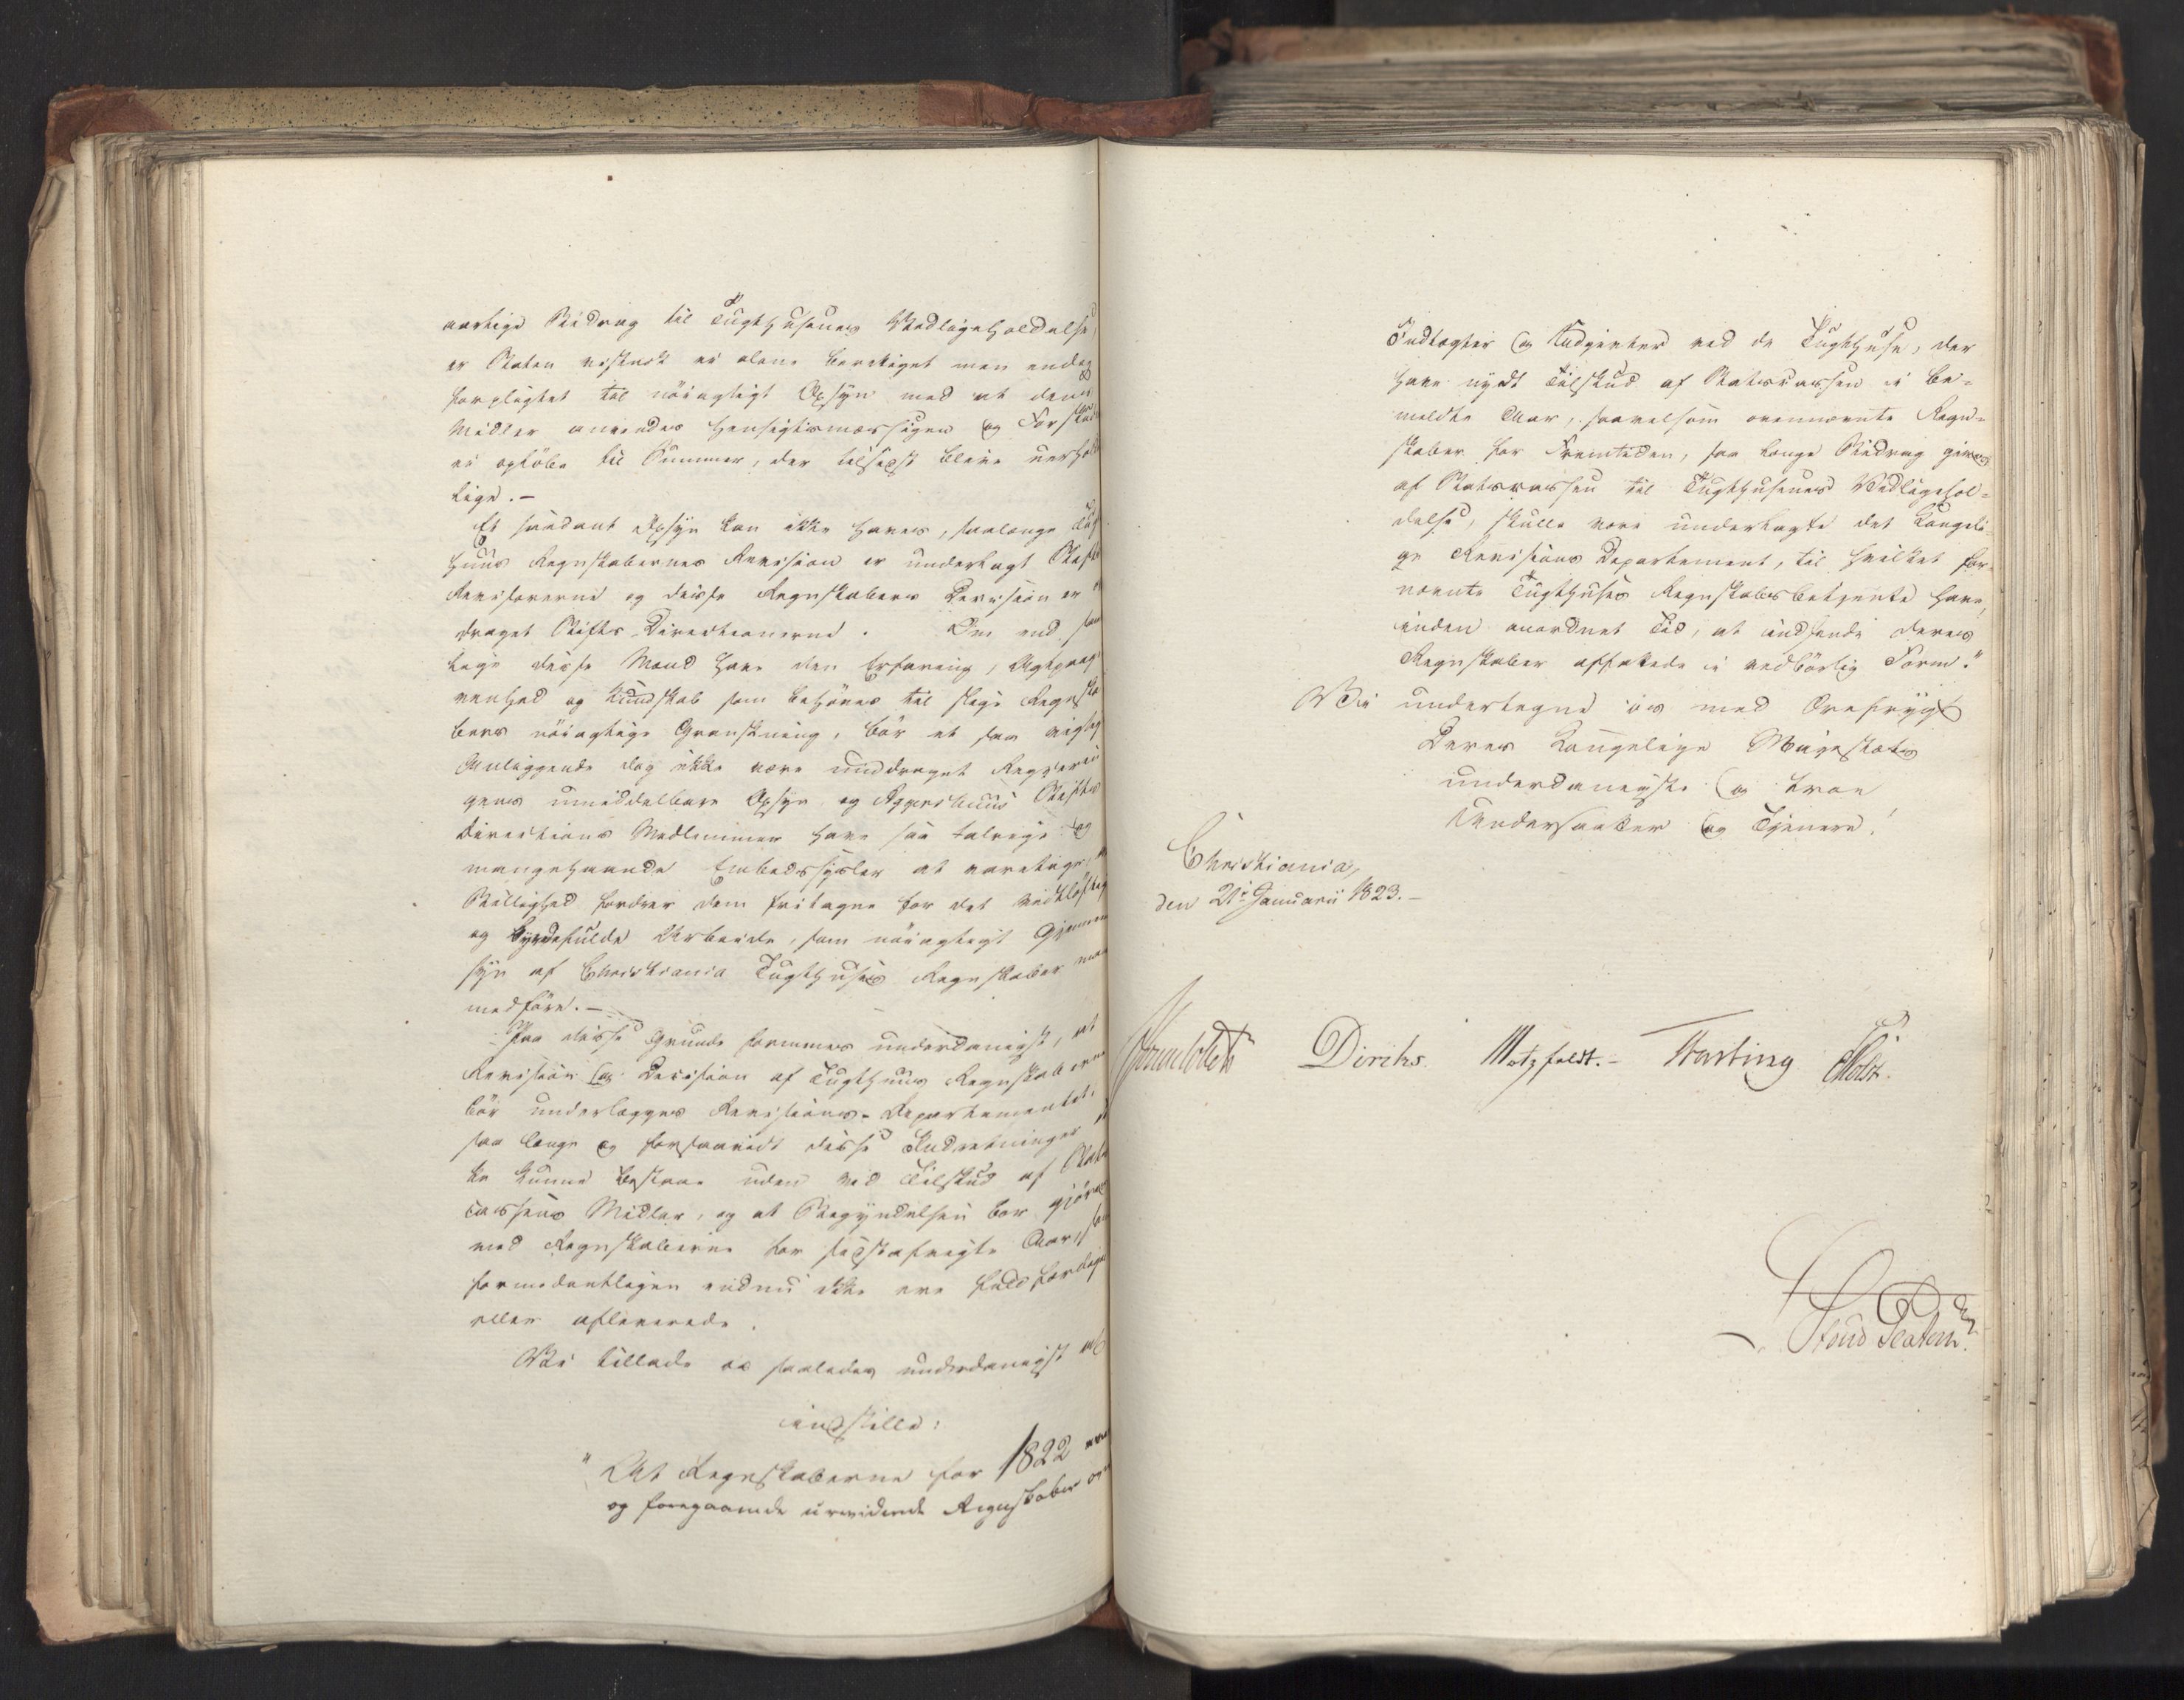 aarlige Bidrag til Tugthusenes Vedligeholdelse,
er Staten vistnok ei alene berettiget men endog
forpligtet til nöiagtigt Opsyn med at denn
Midler anvendes hensigtsmæssigen og Forskud
ei oplöbe til Summer, der tilsidst blive uerhold
lige.-
Et saadant Opsyn kan ikke haves, saalænge Tugt
huus Regnskabernes Revision er underlagt Stifts
Revisorerne og disse Regnskabers Decision er
draget Stifts-Directionerne. Om end
lige disse Mænd have den Erfaring, Agtpaagi
venhed og Kundskab som behöves til slige Regnska
bers nöiagtige Granskning, bör et saa vigtig
Anliggende dog ikke være unddraget Regjerin
gens umiddelbare Opsyn og Aggershuus Stifts
Directions Medlemmer have saa talrige og
mangehaande Embedssysler at varetage,
Billighed fordrer dem fritagne for det vidtlöftig
og byrdefulde Arbeide, som nöiagtigt Gjennem
syn af Christiania Tugthuses Regnskaber maa
medföre.-
Paa disse Grunde formenes underdanigst, at
Revision og Decision af Tugthuus Regnskaberne
bör underlægges Revisions-Departementet,
saa længe og forsaavidt disse Indretninger ei
ke kunne bestaae uden ved Tilskud af Stats
cassens Midler, og at Begyndelsen bör gjöres
med Regnskaberne for sidstafvigte Aar,
formodentligen endnu ikke ere fuldfærdige
eller afleverede.
Vi tillade os saaledes underdanigst at
indstille:
"At Regnskaberne for 1822
og foregaaende ureviderede Regnskaber over
Indtægter og Udgivter ved de Tugthuse, der
have nydt Tilskud af Statscassen i be-
meldte Aar, saavelsom ovennævnte Regn-
skaber for Fremtiden, saa længe Bidrag gives
af Statscassen til Tugthusenes Vedligehol-
delse, skulle være underlagte det Kongeli-
ge Revisions Departement, til hvilket for-
nævnte Tugthuses Regnskabsbetjente have,
inden anordnet Tid, at indsende deres
Regnskaber affattede i vedbörlig Form."
Vi undertegne os med Ærefrygt
Deres Kongelige Majestæts
underdanigste og troe
Undersaatter og Tjenere!
Christiania,
den 21 Januarii 1823.-
Diriks. Motzfeldt.- Fasting Holst.